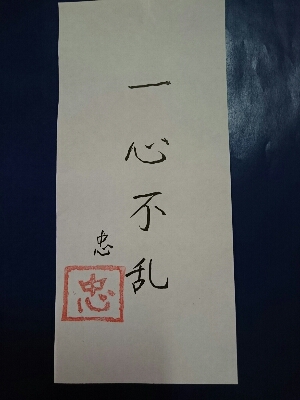 一心不乱
忠
忠